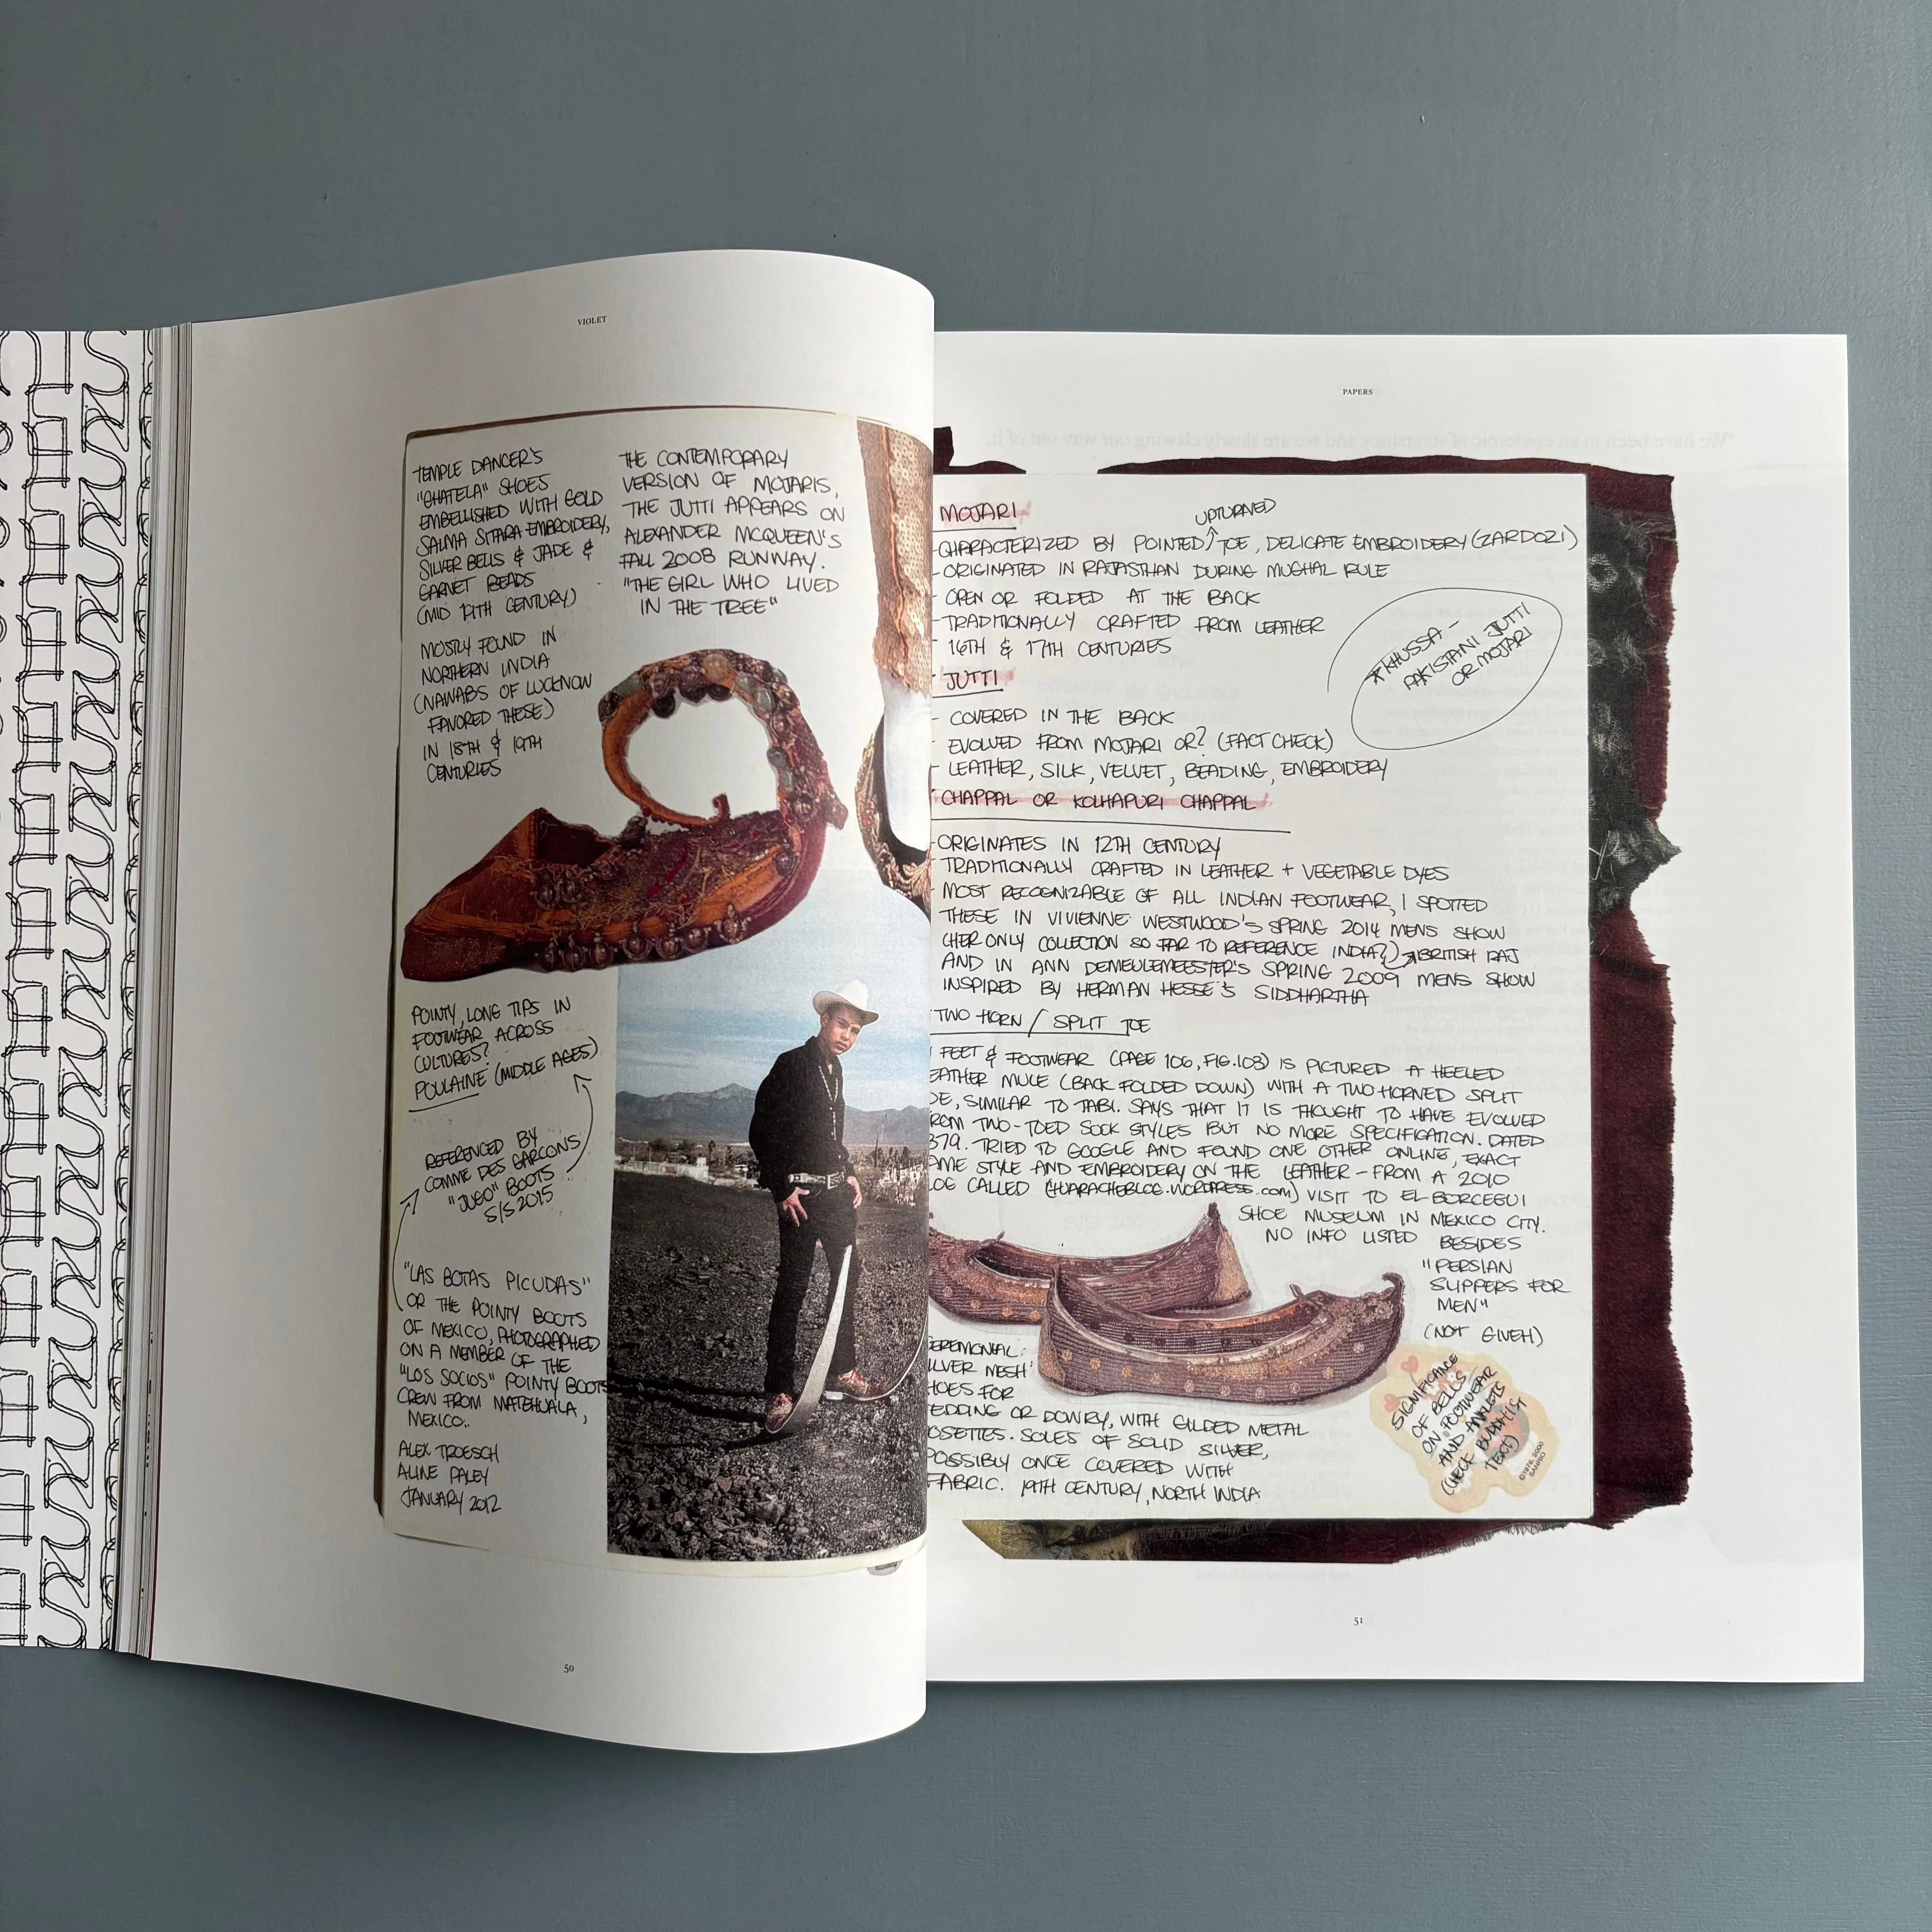 VIOLET
TEMPLE DANCER'S
"GHATELA" SHOES
EMBELLISHED WITH GOLD
SALMA SITARA EMBROIDERY,
SILVER BELLS & JADE &
GARNET BEADS
(MID 19TH CENTURY)
MOSTLY FOUND IN
NORTHERN INDIA
(NAWABS OF LUCKNOW
FAVORED THESE)
IN 18TH & 19TH
CENTURIES
THE CONTEMPORARY
VERSION OF MOJARIS,
THE JUTTI APPEARS ON
ALEXANDER MCQUEEN'S
FALL 2008 RUNWAY.
"THE GIRL WHO LIVED
IN THE TREE"
POINTY, LONG TIPS IN
FOOTWEAR ACROSS
CULTURES?
POULAINE (MIDDLE AGES)
REFERENCED BY
COMME DES GARCONS
"JUGO" BOOTS
S/S 2015
"LAS BOTAS PICUDAS"
OR THE POINTY BOOTS
OF MEXICO, PHOTOGRAPHED
ON A MEMBER OF THE
"LOS SOCIOS" POINTY BOOTS
CREW FROM MATEHUALA,
MEXICO..
ALEX TROESCH
ALINE PALEY
JANUARY 2012
50
PAPERS
MOJARI
UPTURNED
-CHARACTERIZED BY POINTED TOE, DELICATE EMBROIDERY (ZARDOZI)
-ORIGINATED IN RAJASTHAN DURING MUGHAL RULE
- OPEN OR FOLDED AT THE BACK
-TRADITIONALLY CRAFTED FROM LEATHER
- 16TH & 17TH CENTURIES
*KHUSSA -
PAKISTANI JUTTI
OR MOJARI
JUTTI
- COVERED IN THE BACK
- EVOLVED FROM MOJARI OR? (FACT CHECK)
- LEATHER, SILK, VELVET, BEADING, EMBROIDERY
CHAPPAL OR KOLHAPURI CHAPPAL
-ORIGINATES IN 12TH CENTURY
-TRADITIONALLY CRAFTED IN LEATHER + VEGETABLE DYES
- MOST RECOGNIZABLE OF ALL INDIAN FOOTWEAR, I SPOTTED
THESE IN VIVIENNE WESTWOOD'S SPRING 2014 MENS SHOW
(HER ONLY COLLECTION SO FAR TO REFERENCE INDIA?) BRITISH RAJ
AND IN ANN DEMEULEMEESTER'S SPRING 2009 MENS SHOW
INSPIRED BY HERMAN HESSE'S SIDDHARTHA
TWO HORN / SPLIT TOE
FEET & FOOTWEAR (PAGE 106, FIG.108) IS PICTURED A HEELED
EATHER MULE (BACK FOLDED DOWN) WITH A TWO HORNED SPLIT
OE, SIMILAR TO TABI. SAYS THAT IT IS THOUGHT TO HAVE EVOLVED
ROM TWO-TOED SOCK STYLES BUT NO MORE SPECIFICATION. DATED
879. TRIED TO GOOGLE AND FOUND ONE OTHER ONLINE, EXACT
AME STYLE AND EMBROIDERY ON THE LEATHER - FROM A 2010
LOG CALLED (HUARACHEBLOG.WORDPRESS.COM) VISIT TO EL BORCEGUI
SHOE MUSEUM IN MEXICO CITY.
NO INFO LISTED BESIDES
"PERSIAN
SLIPPERS FOR
MEN"
(NOT GIVEH)
EREMONIAL:
ILVER MESH
HOES FOR
EDDING OR DOWRY, WITH GILDED METAL
OSETTES. SOLES OF SOLID SILVER,
POSSIBLY ONCE COVERED WITH
FABRIC. 19TH CENTURY, NORTH INDIA
SIGNIFICANCE
OF BELLS
ON FOOTWEAR
AND ANKLETS
(CHECK BUDDHIST
TEXT)
©1976, 2000
SANRIO
51